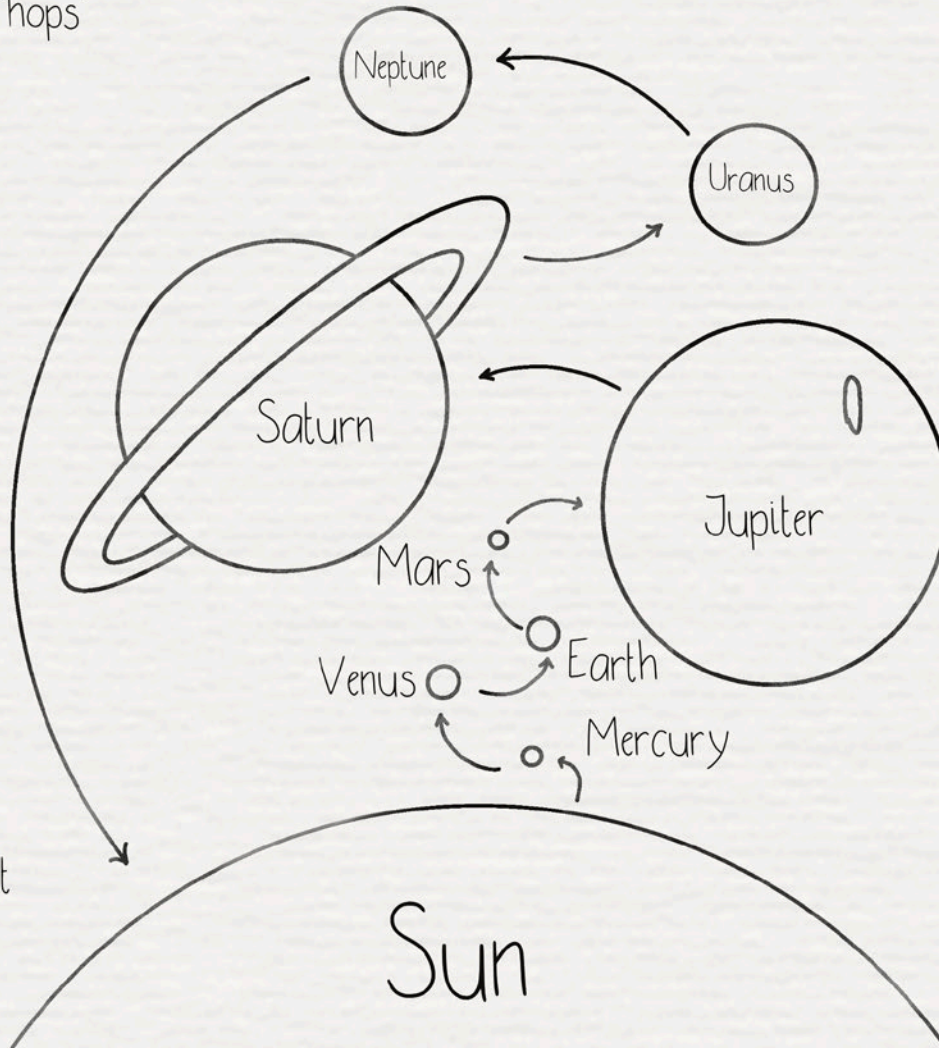 hops
Neptune
Uranus
Saturn
Jupiter
Mars
Earth
Venus
Mercury
t
Sun